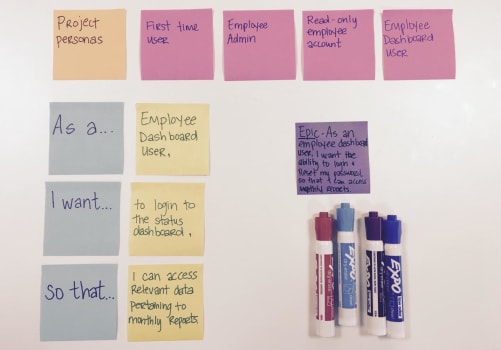 Project
personas
First time
user
Employee
Admin
Read-only
employee
account
Employee
Dashboard
User
As a...
Employee
Dashboard
User.
I want...
to login to
the status
dashboard.
so that...
I can access
Relevant data
pertaining to
monthly Reports.
Epic - As an
employee dashboard
user, I want the
ability to login +
Reset my password,
so that I can access
monthly reports.
EXPO
EXPO
EXPO